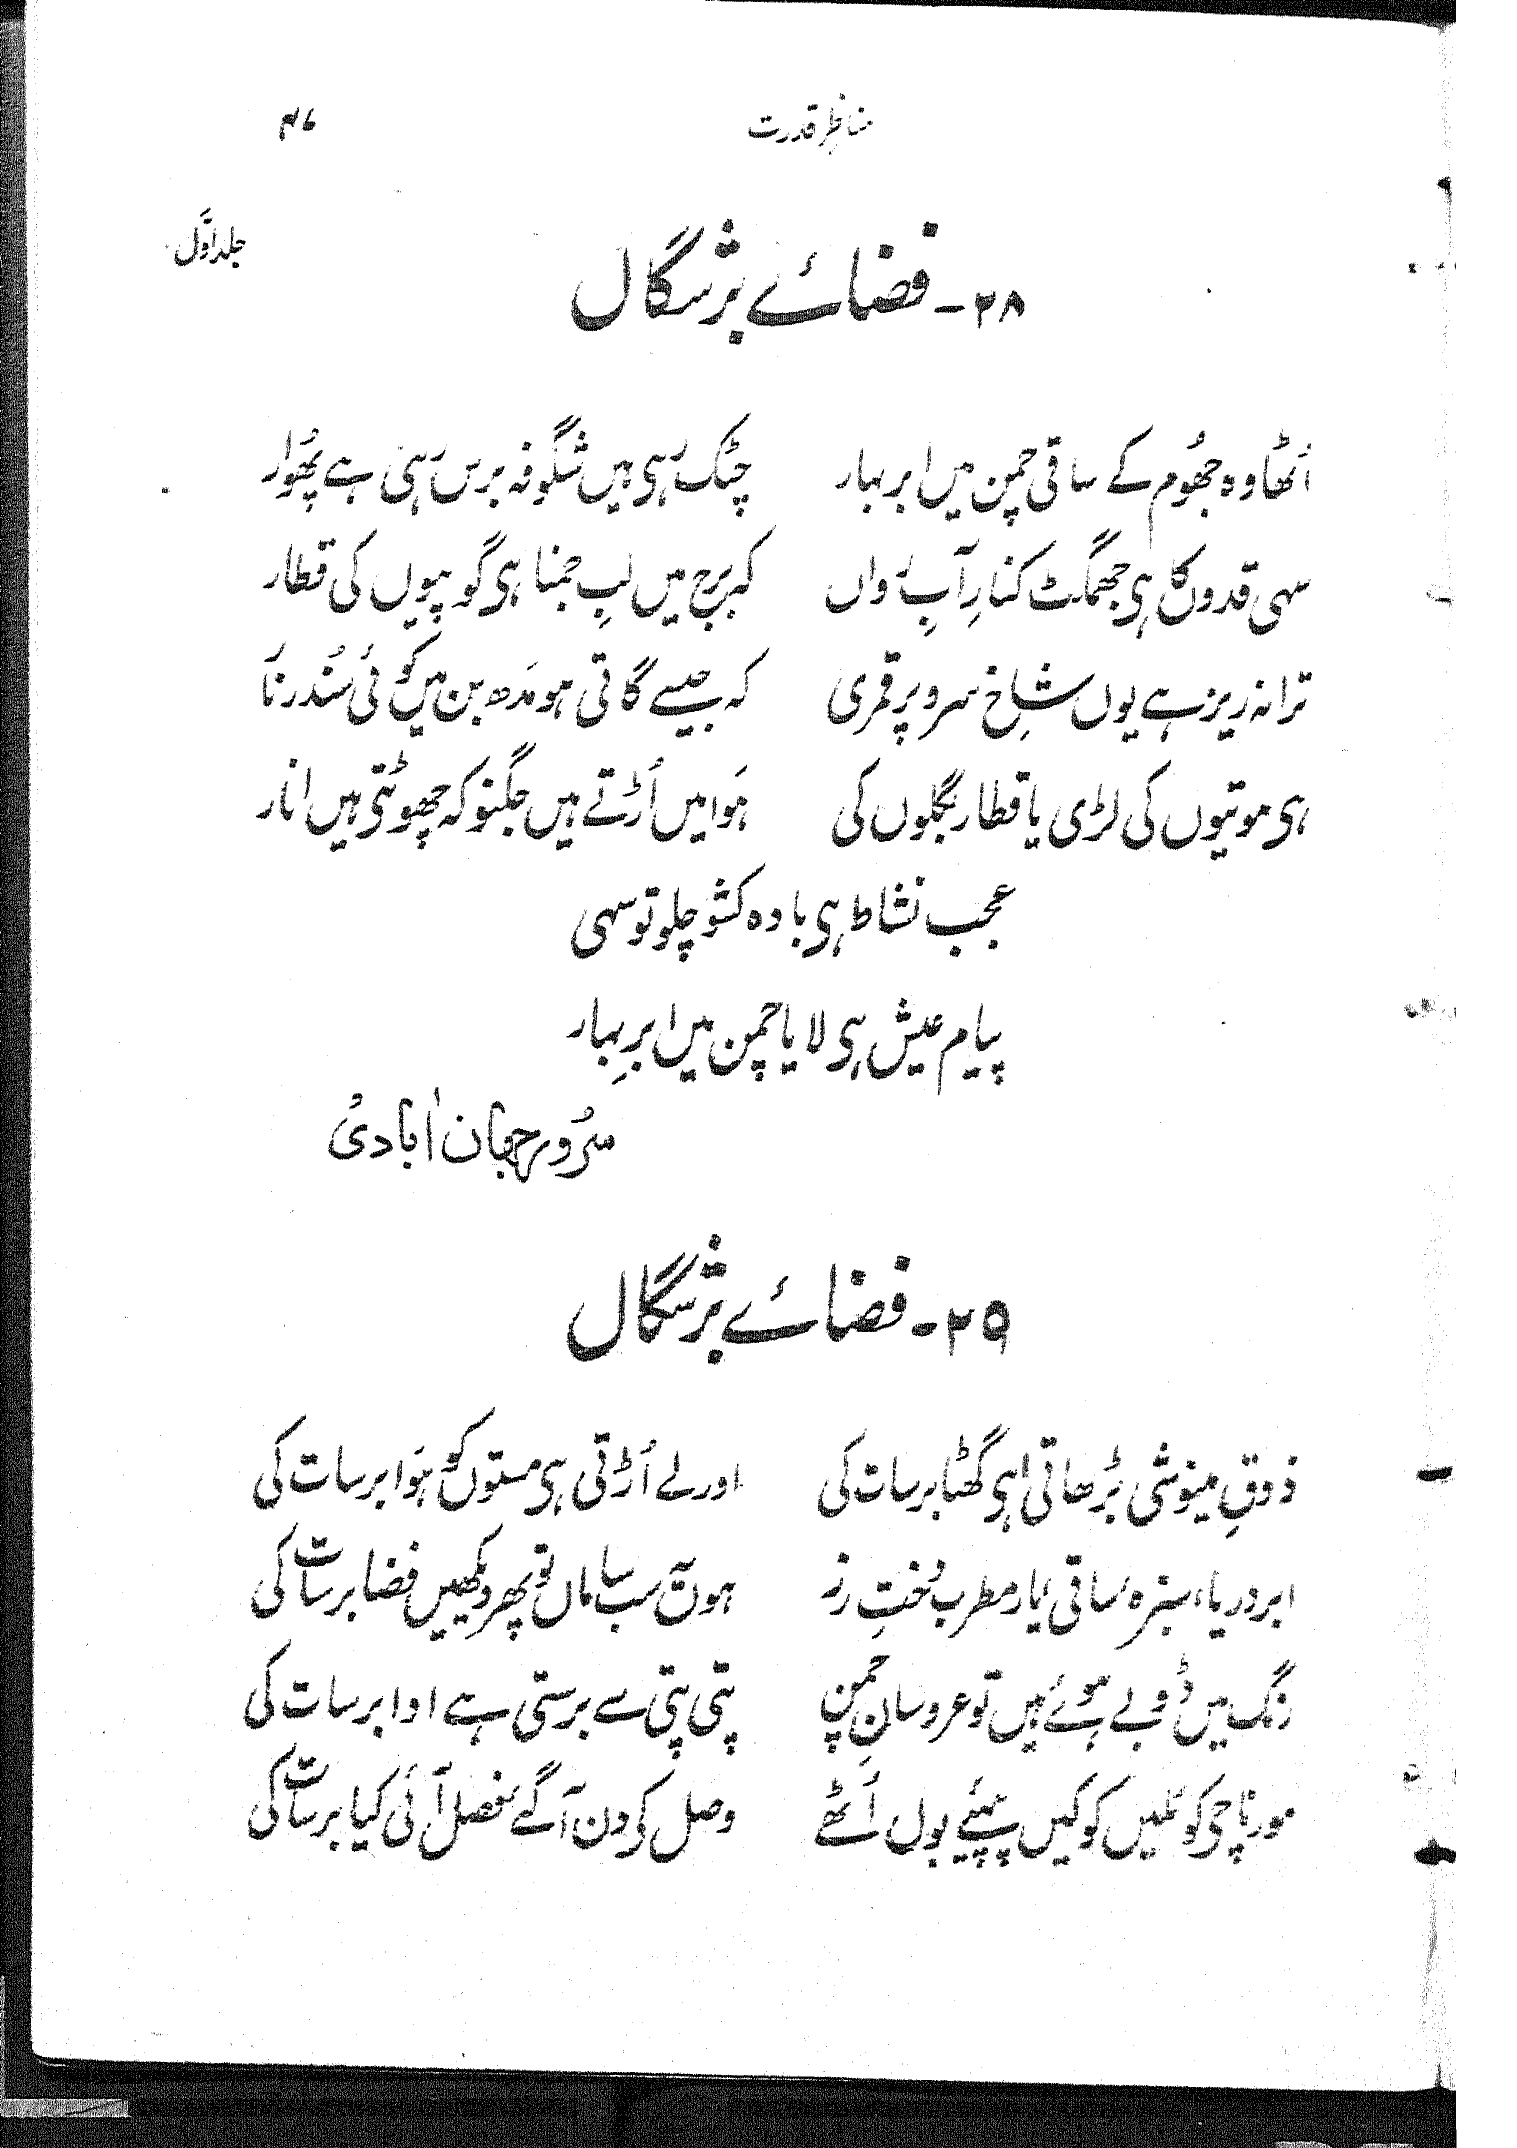 مناظر قدرت ۴۷
جلد اوّل
۲۸ - فضائے برشگال
اُٹھا وہ جھُوم کے ساقی چمن میں ابر بہار چٹک رہی ہیں شگوفہ برس رہی ہے پھُوار
سہی قدوں کا ہی جھمگٹ کنارِ آبِ رواں کہ برج میں لبِ جمنا ہی گوپیوں کی قطار
ترانہ ریز ہے یوں شاخِ سرو پر قمری کہ جیسے گاتی ہو مدھ بن میں کوئی سُندر نار
ہی موتیوں کی لڑی یا قطار بگلوں کی ہَوا میں اُڑتے ہیں جگنو کہ چھوٹتی ہیں انار
عجب نشاط ہی بادہ کشو چلو تو سہی
پیام عیش ہی لایا چمن میں ابرِ بہار
سرُور جہان اٰبادی
۲۹ - فضائے برشگال
ذوقِ مینوشی بڑھاتی ہی گھٹا برسات کی اور لے اُڑتی ہی مستوں کو ہَوا برسات کی
ابر و دریا، سبزہ ساقی یار مطرب دُختِ رز ہوں سب ساماں تو پھر دیکھیں فضا برسات کی
رنگ میں ڈوبے ہوئے ہیں نو عروسانِ چمن پتی پتی سے برستی ہے ادا برسات کی
مور ناچی کوئلیں کوکیں پپیہے بول اُٹھے وصل کی دن آ گئے فصل آئی کیا برسات کی